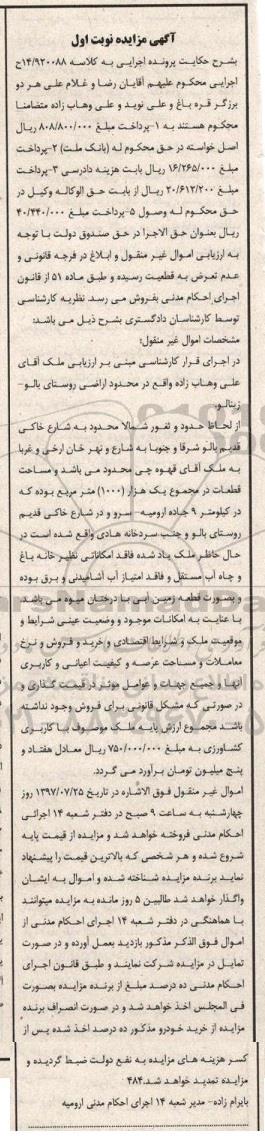 آگهی مزایده نوبت اول
بشرح حکایت پرونده اجرایی به کلاسه ۱۴/۹۲۰۰۸۸ج
اجرایی محکوم علیهم آقایان رضا و غلام علی هر دو
برزگر قره باغ و علی نوید و علی وهاب زاده متضامنا
محکوم هستند به ۱-پرداخت مبلغ ۸۰۸/۸۰۰/۰۰۰ ریال
اصل خواسته در حق محکوم له (بانک ملت) ۲-پرداخت
مبلغ ۱۶/۲۶۵/۰۰۰ ریال بابت هزینه دادرسی ۳-پرداخت
مبلغ ۲۰/۶۱۲/۲۰۰ ریال از بابت حق الوکاله وکیل در
حق محکوم له وصول ۵-پرداخت مبلغ ۴۰/۴۴۰/۰۰۰
ریال بعنوان حق الاجرا در حق صندوق دولت با توجه
به ارزیابی اموال غیر منقول و ابلاغ در فرجه قانونی و
عدم تعرض به قطعیت رسیده و طبق ماده ۵۱ از قانون
اجرای احکام مدنی بفروش می رسد. نظریه کارشناسی
توسط کارشناسان دادگستری بشرح ذیل می باشد:
مشخصات اموال غیر منقول:
در اجرای قرار کارشناسی مبنی بر ارزیابی ملک آقای
علی وهاب زاده واقع در محدود اراضی روستای بالو-
زینالو.
از لحاظ حدود و ثغور شمالا محدود به شارع خاکی
قدیم بالو شرقا و جنوبا به شارع و نهر خان ارخی و غربا
به ملک آقای قهوه چی محدود می باشد و مساحت
قطعات در مجموع یک هزار (۱۰۰۰) متر مربع بوده که
در کیلومتر ۹ جاده ارومیه- سرو و در شارع خاکی قدیم
روستای بالو و جنب سردخانه هادی واقع شده است در
حال حاظر ملک یاد شده فاقد امکاناتی نظیر خانه باغ
و چاه آب مستقل و فاقد امتیاز آب آشامیدنی و برق بوده
و بصورت قطعه زمین آبی با درختان میوه می باشد.
با عنایت به امکانات موجود و وضعیت عینی شرایط و
موقعیت ملک و شرایط اقتصادی و خرید و فروش و نرخ
معاملات و مساحت عرصه و کیفیت اعیانی و کاربری
آنها و جمیع جهات و عوامل موثر در قیمت گذاری و
در صورتی که مشکل قانونی برای فروش وجود نداشته
باشد مجموع ارزش پایه ملک موصوف با کاربری
کشاورزی به مبلغ ۷۵۰/۰۰۰/۰۰۰ ریال معادل هفتاد و
پنج میلیون تومان برآورد می گردد.
اموال غیر منقول فوق الاشاره در تاریخ ۱۳۹۷/۰۷/۲۵ روز
چهارشنبه به ساعت ۹ صبح در دفتر شعبه ۱۴ اجرائی
احکام مدنی فروخته خواهد شد و مزایده از قیمت پایه
شروع شده و هر شخصی که بالاترین قیمت را پیشنهاد
نماید برنده مزایده شناخته شده و اموال به ایشان
واگذار خواهد شد طالبین ۵ روز مانده به مزایده میتوانند
با هماهنگی در دفتر شعبه ۱۴ اجرای احکام مدنی از
اموال فوق الذکر مذکور بازدید بعمل آورده و در صورت
تمایل در مزایده شرکت نمایند و طبق قانون اجرای
احکام مدنی ده درصد مبلغ از برنده مزایده بصورت
فی المجلس اخذ خواهد شد و در صورت انصراف برنده
مزایده از خرید خودرو مذکور ده درصد اخذ شده پس از
کسر هزینه های مزایده به نفع دولت ضبط گردیده و
مزایده تمدید خواهد شد.۴۸۴
بایرام زاده- مدیر شعبه ۱۴ اجرای احکام مدنی ارومیه